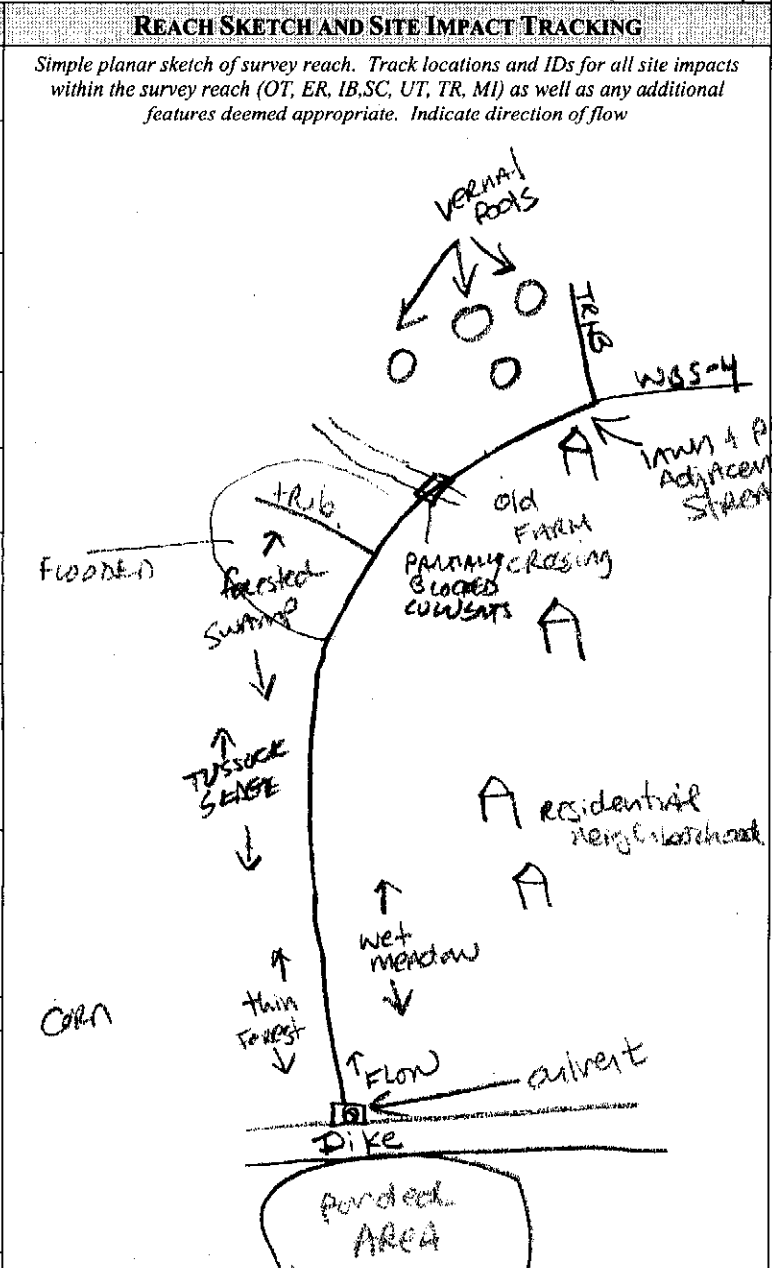 REACH SKETCH AND SITE IMPACT TRACKING
Simple planar sketch of survey reach. Track locations and IDs for all site impacts
within the survey reach (OT, ER, IB,SC, UT, TR, MI) as well as any additional
features deemed appropriate. Indicate direction of flow
VERNAL
POOLS
TRIB
WBS-4
LAWN + P
Adjacen
Strea
tRib.
old
FARM
CROSSING
PARTIALLY
BLOCKED
CULVERTS
FLOODED
forested
Swamp
TUSSOCK
SEDGE
Residential
neighborhood
wet
meadow
thin
Forest
CORN
FLOW
culvert
Dike
Ponded
AREA